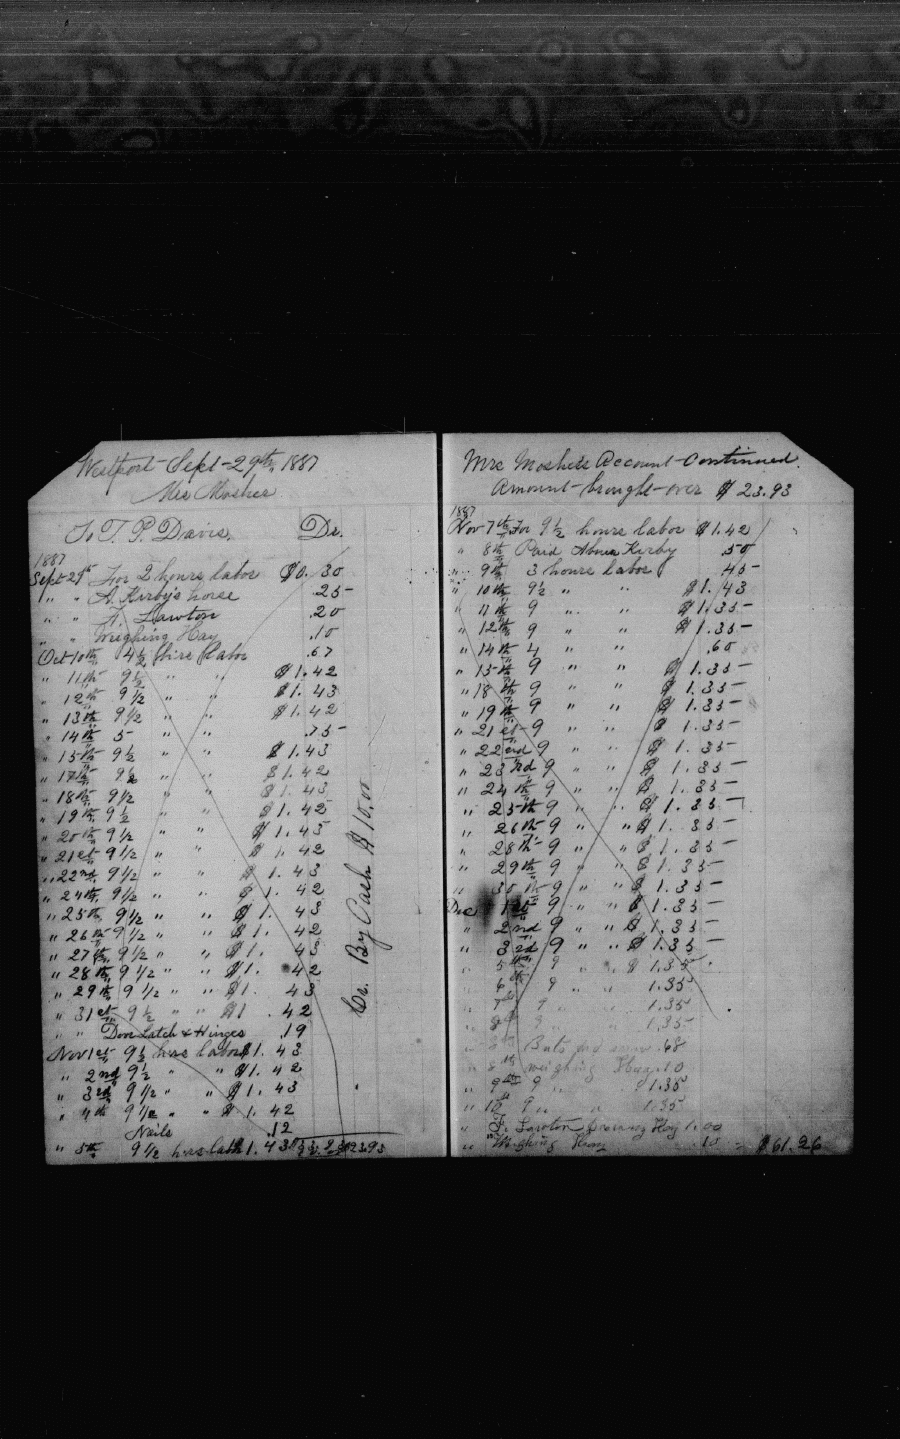 Westport Sept 29th, 1887
Mrs Mosher
To T. P. Davis. Dr.
1887
Sept 29th For 2 hours labor $0.30
" " A. Kirby's horse .25
" " F. Lawton .20
" " Weighing Hay .10
Oct 10th 4½ hire labor .67
" 11th 9½ " " $1.42
" 12th 9½ " " $1.43
" 13th 9½ " " $1.42
" 14th 5 " " .75
" 15th 9½ " " $1.43
" 17th 9½ " " $1.42
" 18th 9½ " " $1.43
" 19th 9½ " " $1.42
" 20th 9½ " " $1.43
" 21st 9½ " " $1.42
" 22nd 9½ " " $1.43
" 24th 9½ " " $1.42
" 25th 9½ " " $1.43
" 26th 9½ " " $1.42
" 27th 9½ " " $1.43
" 28th 9½ " " $1.42
" 29th 9½ " " $1.43
" 31st 9½ " " $1.42
" " Door Latch & Hinges .19
Nov 1st 9½ hrs labor $1.43
" 2nd 9½ " " $1.42
" 3rd 9½ " " $1.43
" 4th 9½ " " $1.42
Nails .12
" 5th 9½ hrs labr $1.43 23.93
Cr. By Cash $10.00
Mrs Moshers Account Continued.
Amount brought over $23.93
1887
Nov 7th For 9½ hours labor $1.42
" 8th Paid Abner Kirby .50
" 9th 3 hours labor .45
" 10th 9½ " " $1.43
" 11th 9 " " $1.35
" 12th 9 " " $1.35
" 14th 4 " " .60
" 15th 9 " " $1.35
" 18th 9 " " $1.35
" 19th 9 " " $1.35
" 21st 9 " " $1.35
" 22nd 9 " " $1.35
" 23rd 9 " " $1.35
" 24th 9 " " $1.35
" 25th 9 " " $1.35
" 26th 9 " " $1.35
" 28th 9 " " $1.35
" 29th 9 " " $1.35
" 30th 9 " " $1.35
Dec 1st 9 " " $1.35
" 2nd 9 " " $1.35
" 3rd 9 " " $1.35
" 5th 9 " " $1.35
" 6th 9 " " 1.35
" 7th 9 " 1.35
" 8th 9 " 1.35
.48
weighing Hay .10
" 9th 9 " 1.35
" 10 9 " " 1.35
" F. Lawton pressing Hay 1.00
" Weighing Hay .15 = $61.26